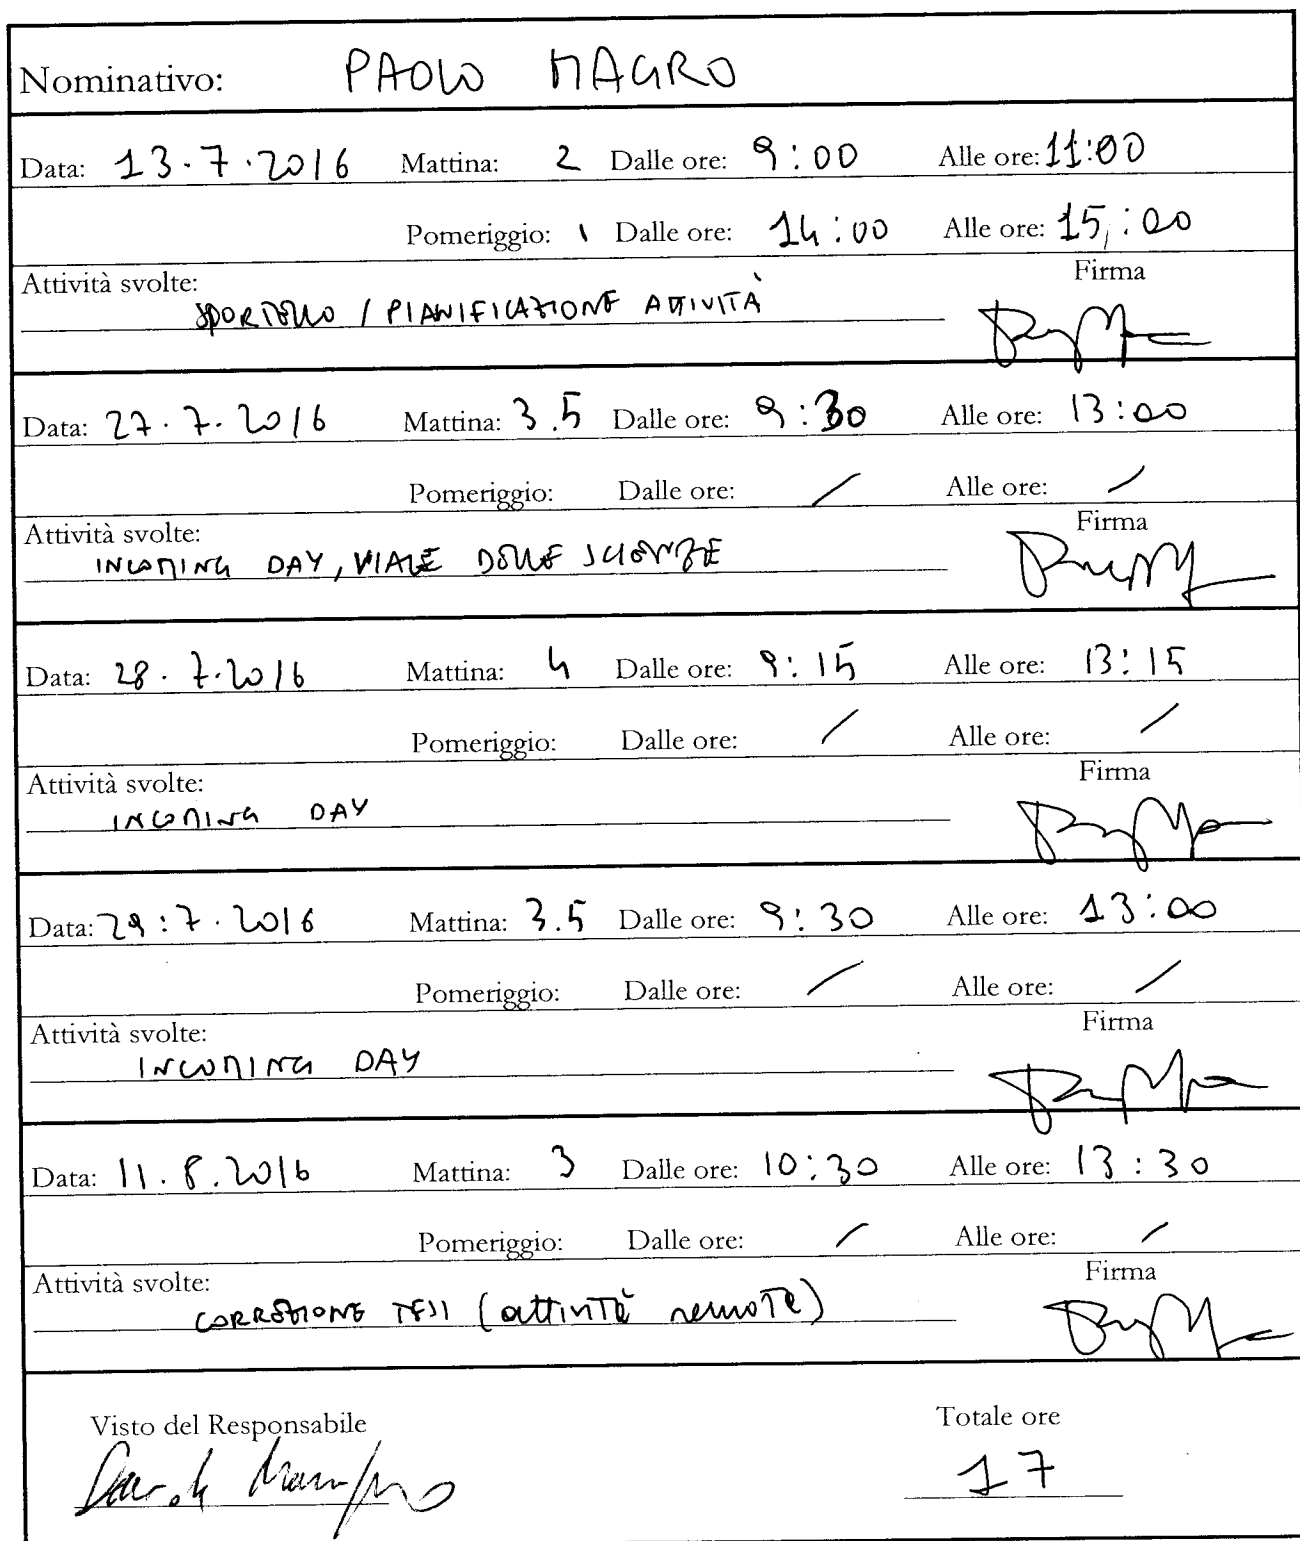 Nominativo: PAOLO MAGRO
Data: 13.7.2016 Mattina: 2 Dalle ore: 9:00 Alle ore: 11:00
Pomeriggio: 1 Dalle ore: 14:00 Alle ore: 15:00
Attività svolte: Firma
SPORTELLO / PIANIFICAZIONE ATTIVITÀ
Data: 27.7.2016 Mattina: 3.5 Dalle ore: 9:30 Alle ore: 13:00
Pomeriggio: Dalle ore: / Alle ore: /
Attività svolte: Firma
INCOMING DAY, VIALE DELLE SCIENZE
Data: 28.7.2016 Mattina: 4 Dalle ore: 9:15 Alle ore: 13:15
Pomeriggio: Dalle ore: / Alle ore: /
Attività svolte: Firma
INCOMING DAY
Data: 29:7.2016 Mattina: 3.5 Dalle ore: 9:30 Alle ore: 13:00
Pomeriggio: Dalle ore: / Alle ore: /
Attività svolte: Firma
INCOMING DAY
Data: 11.8.2016 Mattina: 3 Dalle ore: 10:30 Alle ore: 13:30
Pomeriggio: Dalle ore: / Alle ore: /
Attività svolte: Firma
CORREZIONE TESI (attività remote)
Visto del Responsabile Totale ore
17